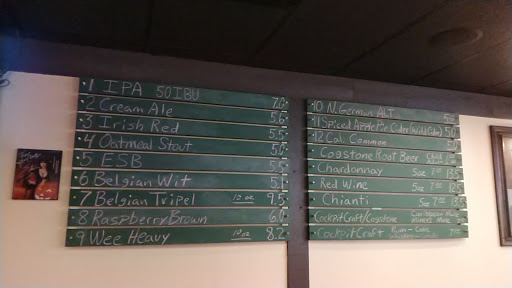 1 IPA 50 IBU 7.0
2 Cream Ale 5.6
3 Irish Red 5.5
4 Oatmeal Stout 5.0
5 ESB 5.5
6 Belgian Wit 5.1
7 Belgian Tripel 10 oz 9.5
8 Raspberry Brown 6.0
9 Wee Heavy 10 oz 8.2
10 N. German ALT 5.5
11 Spiced Apple Pie Cider (Wild Cider) 5.0
12 Cal. Common
Cogstone Root Beer
Chardonnay 5oz 7.00
Red Wine 5oz 7.00
Chianti 5oz 7.00
CockpitCraft/Cogstone
CockpitCraft Rum-Cola